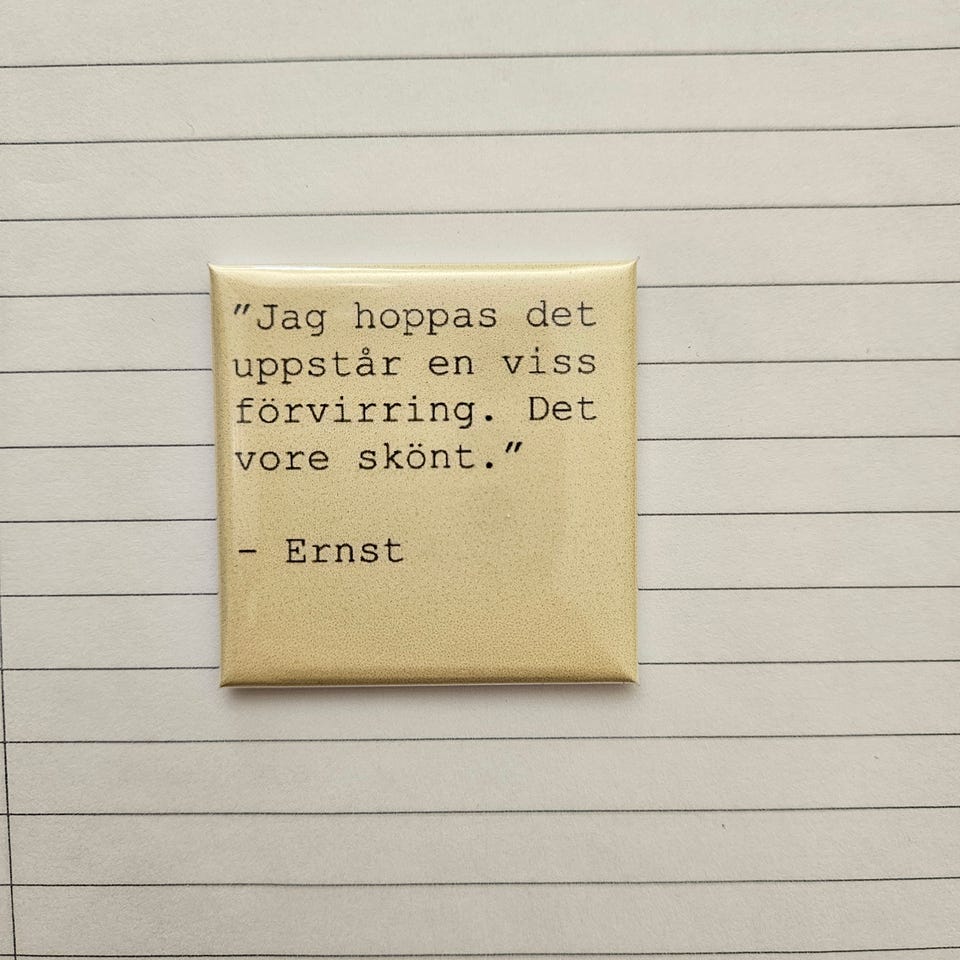 "Jag hoppas det
uppstår en viss
förvirring. Det
vore skönt."
- Ernst